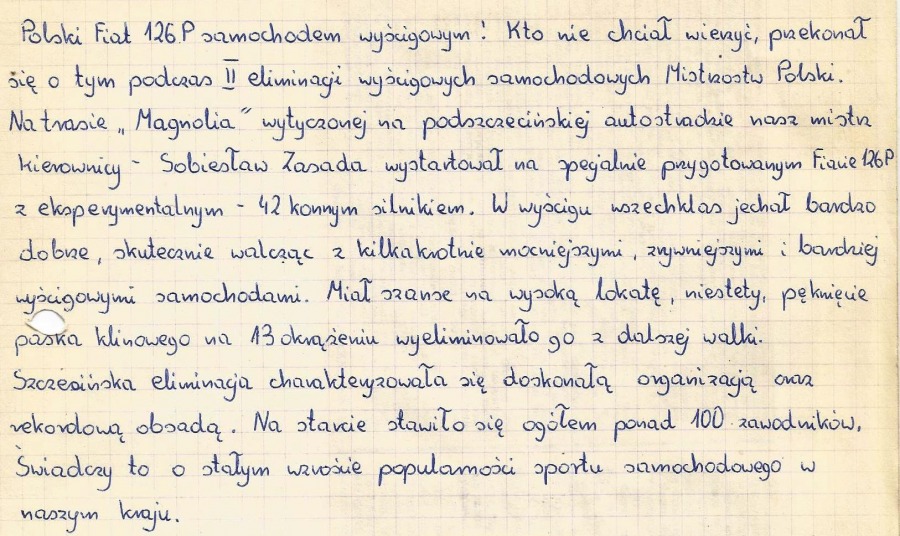 Polski Fiat 126P samochodem wyścigowym! Kto nie chciał wierzyć, przekonał
się o tym podczas II eliminacji wyścigowych samochodowych Mistrzostw Polski.
Na trasie „Magnolia” wytyczonej na podszczecińskiej autostradzie nasz mistrz
kierownicy - Sobiesław Zasada wystartował na specjalnie przygotowanym Fiacie 126P
z eksperymentalnym - 42 konnym silnikiem. W wyścigu wszechklas jechał bardzo
dobrze, skutecznie walcząc z kilkakrotnie mocniejszymi, zrywniejszymi i bardziej
wyścigowymi samochodami. Miał szanse na wysoką lokatę, niestety, pęknięcie
paska klinowego na 13 okrążeniu wyeliminowało go z dalszej walki.
Szczecińska eliminacja charakteryzowała się doskonałą organizacją oraz
rekordową obsadą. Na starcie stawiło się ogółem ponad 100 zawodników.
Świadczy to o stałym wzroście popularności sportu samochodowego w
naszym kraju.